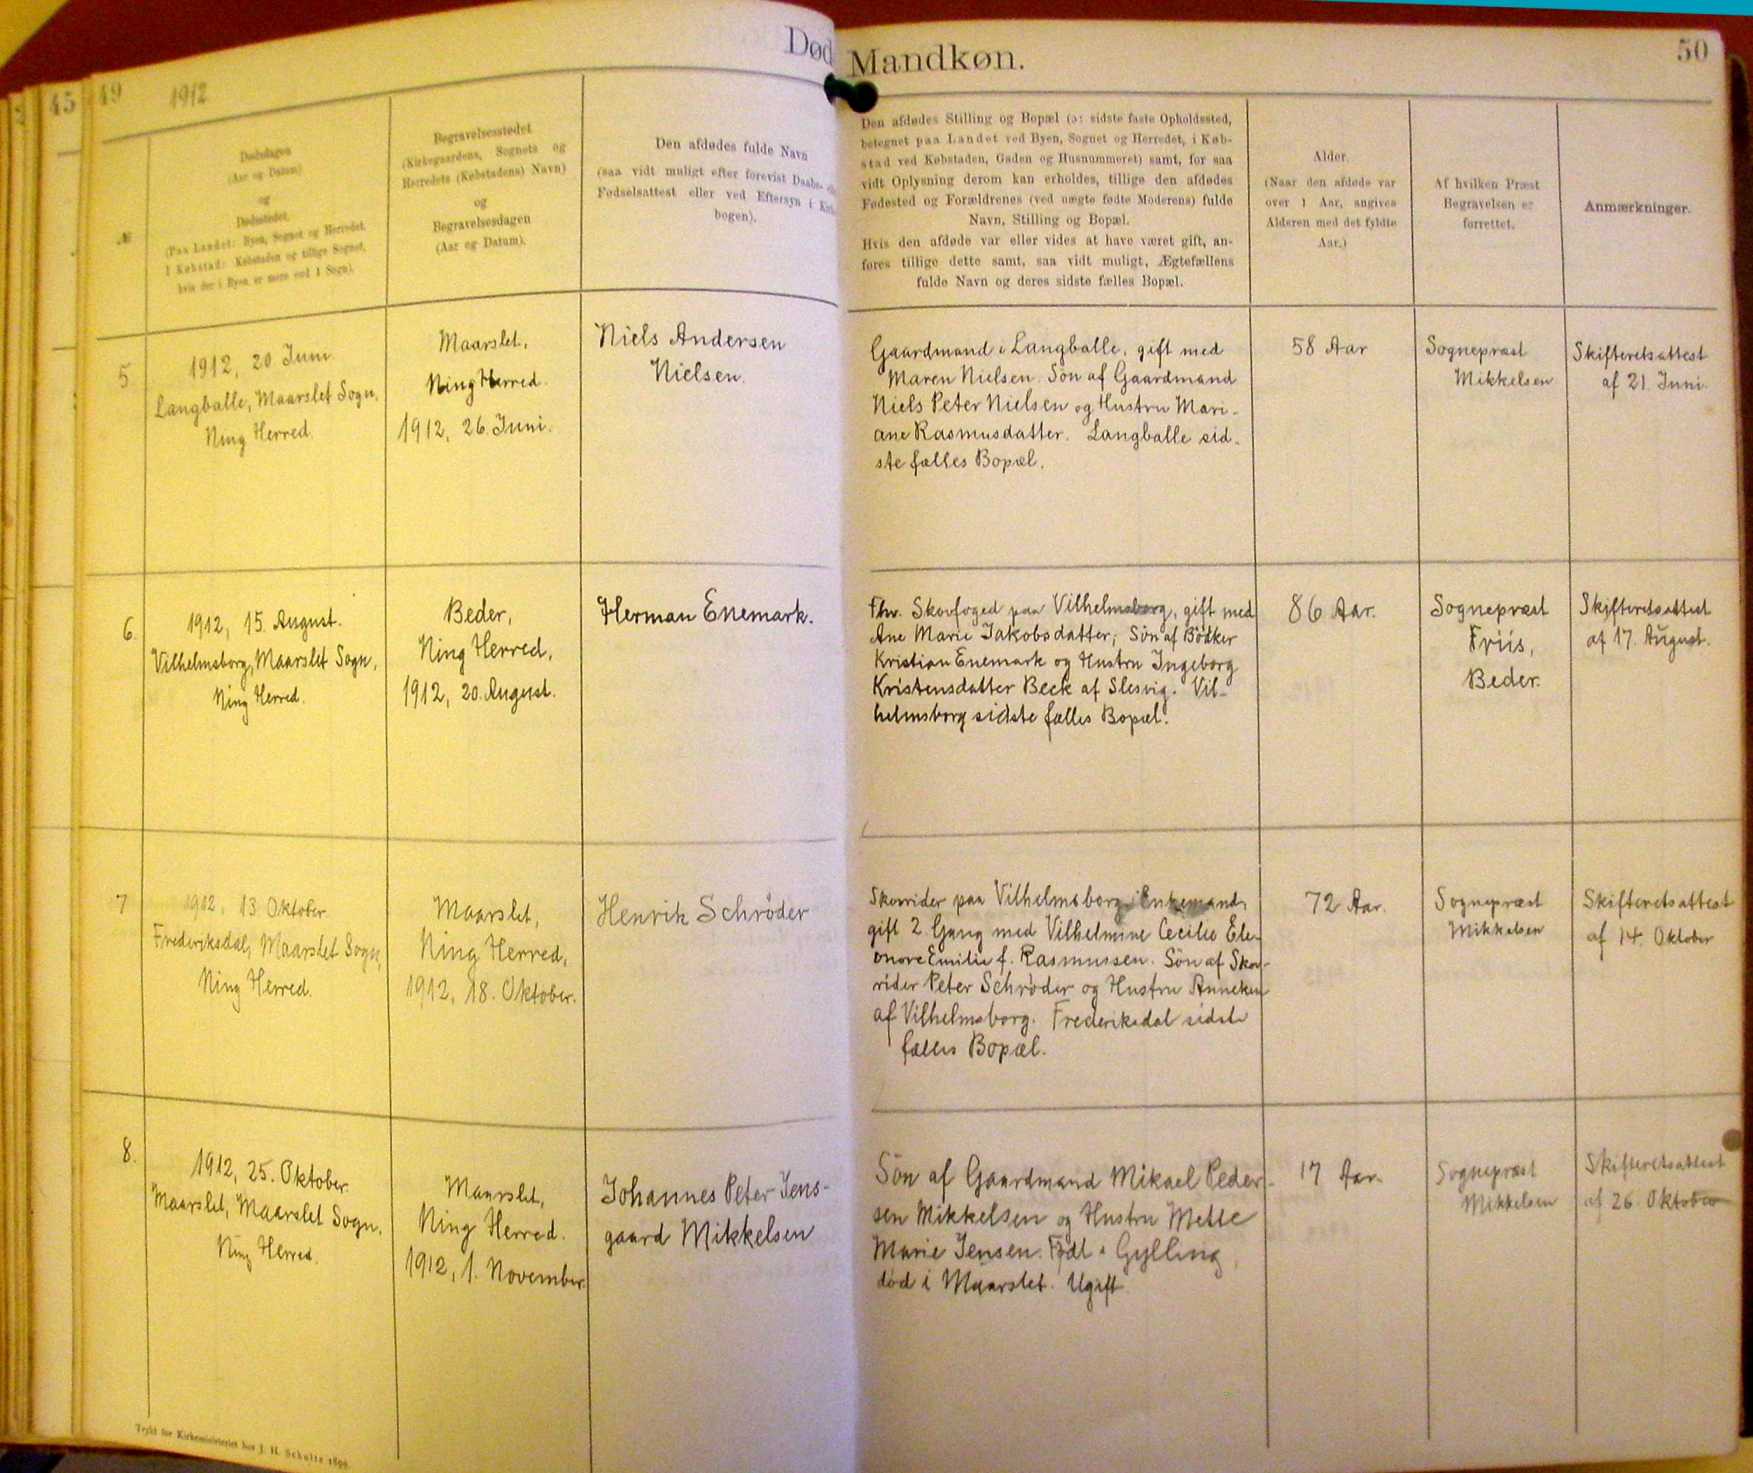 Død
Mandkøn.
45
49
1912
50
№
Dødsdagen
(Aar og Datum)
og
Dødsstedet.
(Paa Landet: Byen, Sognet og Herredet,
I Købstad: Købstaden og tillige Sognet,
hvis der i Byen er mere end 1 Sogn).
Begravelsesstedet
(Kirkegaardens, Sognets og
Herredets (Købstadens) Navn)
og
Begravelsesdagen
(Aar og Datum).
Den afdødes fulde Navn
(saa vidt muligt efter forevist Daabs-
Fødselsattest eller ved Eftersyn i
bogen).
Den afdødes Stilling og Bopæl (ɔ: sidste faste Opholdssted,
betegnet paa Landet ved Byen, Sognet og Herredet, i Køb-
stad ved Købstaden, Gaden og Husnummeret) samt, for saa
vidt Oplysning derom kan erholdes, tillige den afdødes
Fødested og Forældrenes (ved uægte fødte Moderens) fulde
Navn, Stilling og Bopæl.
Hvis den afdøde var eller vides at have været gift, an-
føres tillige dette samt, saa vidt muligt, Ægtefællens
fulde Navn og deres sidste fælles Bopæl.
Alder.
(Naar den afdøde var
over 1 Aar, angives
Alderen med det fyldte
Aar.)
Af hvilken Præst
Begravelsen er
forrettet.
Anmærkninger.
5
1912, 20 Juni
Langballe, Maarslet Sogn,
Ning Herred.
Maarslet,
Ning Herred.
1912, 26. Juni.
Niels Andersen
Nielsen.
Gaardmand i Langballe, gift med
Maren Nielsen. Søn af Gaardmand
Niels Peter Nielsen og Hustru Mari-
ane Rasmusdatter. Langballe sid-
ste fælles Bopæl.
58 Aar
Sognepræst
Mikkelsen
Skifteretsattest
af 21. Juni.
6.
1912, 15. August.
Vilhelmsborg, Maarslet Sogn,
Ning Herred.
Beder,
Ning Herred,
1912, 20. August.
Herman Enemark.
Fhv. Skovfoged paa Vilhelmsborg, gift med
Ane Marie Jakobsdatter; Søn af Bødker
Kristian Enemark og Hustru Ingeborg
Kristensdatter Beck af Slesvig. Vil-
helmsborg sidste fælles Bopæl.
86 Aar.
Sognepræst
Friis,
Beder.
Skifteretsattest
af 17. August.
7
1912, 13 Oktober
Frederiksdal, Maarslet Sogn,
Ning Herred.
Maarslet,
Ning Herred,
1912, 18. Oktober.
Henrik Schrøder
Skovrider paa Vilhelmsborg, Enkemand,
gift 2. Gang med Vilhelmine Cecilie Ele-
onore Emilie f. Rasmussen. Søn af Skov-
rider Peter Schrøder og Hustru Anneken
af Vilhelmsborg. Frederiksdal sidste
fælles Bopæl.
72 Aar.
Sognepræst
Mikkelsen
Skifteretsattest
af 14. Oktober
8.
1912, 25. Oktober.
Maarslet, Maarslet Sogn,
Ning Herred.
Maarslet,
Ning Herred.
1912, 1. November.
Johannes Peter Jens-
gaard Mikkelsen
Søn af Gaardmand Mikael Peder-
sen Mikkelsen og Hustru Mette
Marie Jensen. Født i Gylling,
død i Maarslet. Ugift
17 Aar.
Sognepræst
Mikkelsen
Skifteretsattest
af 26. Oktober
Trykt for Kirkeministeriet hos J. H. Schultz